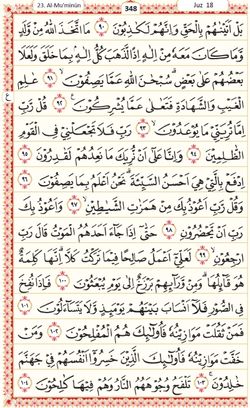 23. Al-Mu'minûn 348 Juz 18
بَلْ اَتَيْنٰهُمْ بِالْحَقِّ وَاِنَّهُمْ لَكٰذِبُوْنَ ۝٩٠ مَا اتَّخَذَ اللّٰهُ مِنْ وَّلَدٍ
وَّمَا كَانَ مَعَهٗ مِنْ اِلٰهٍ اِذًا لَّذَهَبَ كُلُّ اِلٰهٍۢ بِمَا خَلَقَ وَلَعَلَا
بَعْضُهُمْ عَلٰى بَعْضٍۗ سُبْحٰنَ اللّٰهِ عَمَّا يَصِفُوْنَۙ ۝٩١ عٰلِمِ
الْغَيْبِ وَالشَّهَادَةِ فَتَعٰلٰى عَمَّا يُشْرِكُوْنَ ۝٩٢ ع قُلْ رَّبِّ
اِمَّا تُرِيَنِّيْ مَا يُوْعَدُوْنَۙ ۝٩٣ رَبِّ فَلَا تَجْعَلْنِيْ فِى الْقَوْمِ
الظّٰلِمِيْنَ ۝٩٤ وَاِنَّا عَلٰٓى اَنْ نُّرِيَكَ مَا نَعِدُهُمْ لَقٰدِرُوْنَ ۝٩٥
اِدْفَعْ بِالَّتِيْ هِيَ اَحْسَنُ السَّيِّئَةَۗ نَحْنُ اَعْلَمُ بِمَا يَصِفُوْنَ ۝٩٦
وَقُلْ رَّبِّ اَعُوْذُ بِكَ مِنْ هَمَزٰتِ الشَّيٰطِيْنِۙ ۝٩٧ وَاَعُوْذُ بِكَ
رَبِّ اَنْ يَّحْضُرُوْنِ ۝٩٨ حَتّٰٓى اِذَا جَاۤءَ اَحَدَهُمُ الْمَوْتُ قَالَ رَبِّ
ارْجِعُوْنِۙ ۝٩٩ لَعَلِّيْٓ اَعْمَلُ صَالِحًا فِيْمَا تَرَكْتُ كَلَّاۗ اِنَّهَا كَلِمَةٌ
هُوَ قَاۤىِٕلُهَاۗ وَمِنْ وَّرَاۤىِٕهِمْ بَرْزَخٌ اِلٰى يَوْمِ يُبْعَثُوْنَ ۝١٠٠ فَاِذَا نُفِخَ
فِى الصُّوْرِ فَلَآ اَنْسَابَ بَيْنَهُمْ يَوْمَىِٕذٍ وَّلَا يَتَسَاۤءَلُوْنَ ۝١٠١
فَمَنْ ثَقُلَتْ مَوَازِيْنُهٗ فَاُولٰۤىِٕكَ هُمُ الْمُفْلِحُوْنَ ۝١٠٢ وَمَنْ
خَفَّتْ مَوَازِيْنُهٗ فَاُولٰۤىِٕكَ الَّذِيْنَ خَسِرُوْٓا اَنْفُسَهُمْ فِيْ جَهَنَّمَ
خٰلِدُوْنَۚ ۝١٠٣ تَلْفَحُ وُجُوْهَهُمُ النَّارُ وَهُمْ فِيْهَا كٰلِحُوْنَ ۝١٠٤